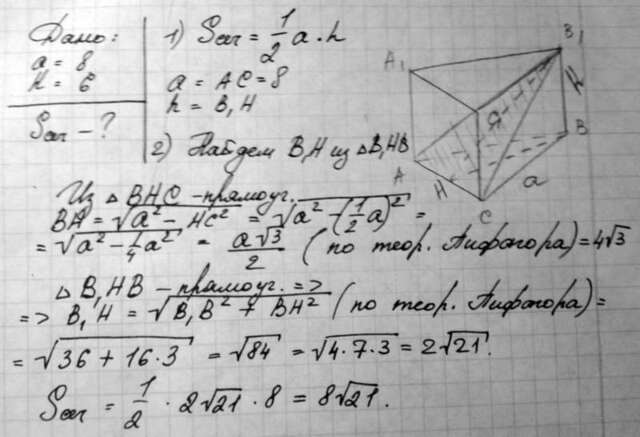 Дано:
a = 8
H = 6
Sсеч - ?
1) Sсеч = 1/2 a · h
a = AC = 8
h = B₁H
2) Найдем B₁H из △B₁HB
A₁
B₁
H
B
A
H
C
a
Из △BHC - прямоуг.
BH = √(a² - HC²) = √(a² - (1/2 a)²) =
= √(a² - 1/4 a²) = a√3/2 (по теор. Пифагора) = 4√3
△B₁HB - прямоуг. =>
=> B₁H = √(B₁B² + BH²) (по теор. Пифагора) =
= √(36 + 16·3) = √84 = √(4·7·3) = 2√21.
Sсеч = 1/2 · 2√21 · 8 = 8√21.